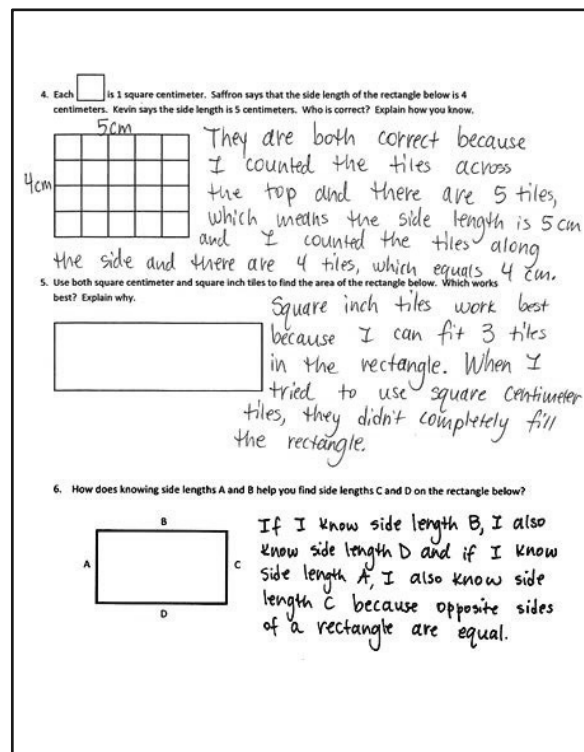 4. Each is 1 square centimeter. Saffron says that the side length of the rectangle below is 4
centimeters. Kevin says the side length is 5 centimeters. Who is correct? Explain how you know.
5cm
4cm
They are both correct because
I counted the tiles across
the top and there are 5 tiles,
which means the side length is 5 cm
and I counted the tiles along
the side and there are 4 tiles, which equals 4 cm.
5. Use both square centimeter and square inch tiles to find the area of the rectangle below. Which works
best? Explain why.
Square inch tiles work best
because I can fit 3 tiles
in the rectangle. When I
tried to use square centimeter
tiles, they didn't completely fill
the rectangle.
6. How does knowing side lengths A and B help you find side lengths C and D on the rectangle below?
B
A
C
D
If I know side length B, I also
know side length D and if I know
side length A, I also know side
length C because opposite sides
of a rectangle are equal.